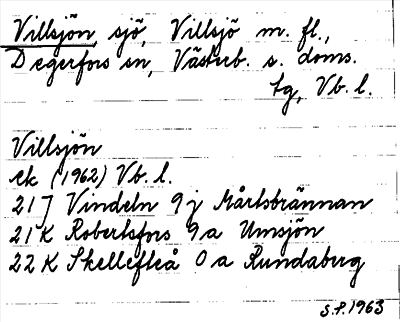 Villsjön, sjö, Villsjö m. fl.,
Degerfors sn, Västerb. s. doms.
tg, Vb. l.
Villsjön
ek (1962) Vb. l.
21 J Vindeln 9 j Mårtsbrännan
21 K Robertsfors 9 a Umsjön
22 K Skellefteå 0 a Rundaberg
S.P. 1963